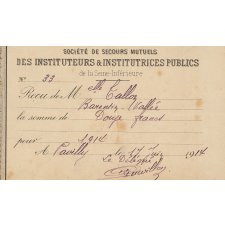 SOCIÉTÉ DE SECOURS MUTUELS
DES INSTITUTEURS & INSTITUTRICES PUBLICS
de la Seine-Inférieure
N° 33
Reçu de M elle
Barentin Vallée
la somme de Douze francs
pour 1914
A Pavilly le 17 1914
Le Délégué